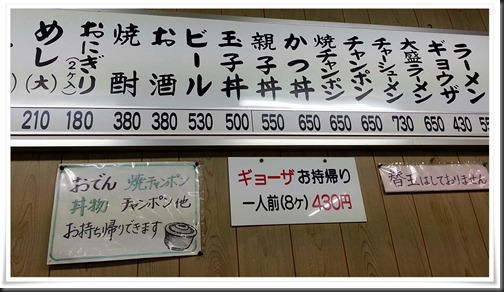 ラーメン
ギョウザ 430
大盛ラーメン 650
チャーシューメン 730
チャンポン 650
焼チャンポン 650
かつ丼 650
親子丼 550
玉子丼 500
ビール 530
お酒 380
焼酎 380
おにぎり(2ヶ入) 180
めし(大) 210
おでん 焼チャンポン
丼物 チャンポン他
お持ち帰りできます
ギョーザお持帰り
一人前(8ヶ)430円
替玉はしておりません